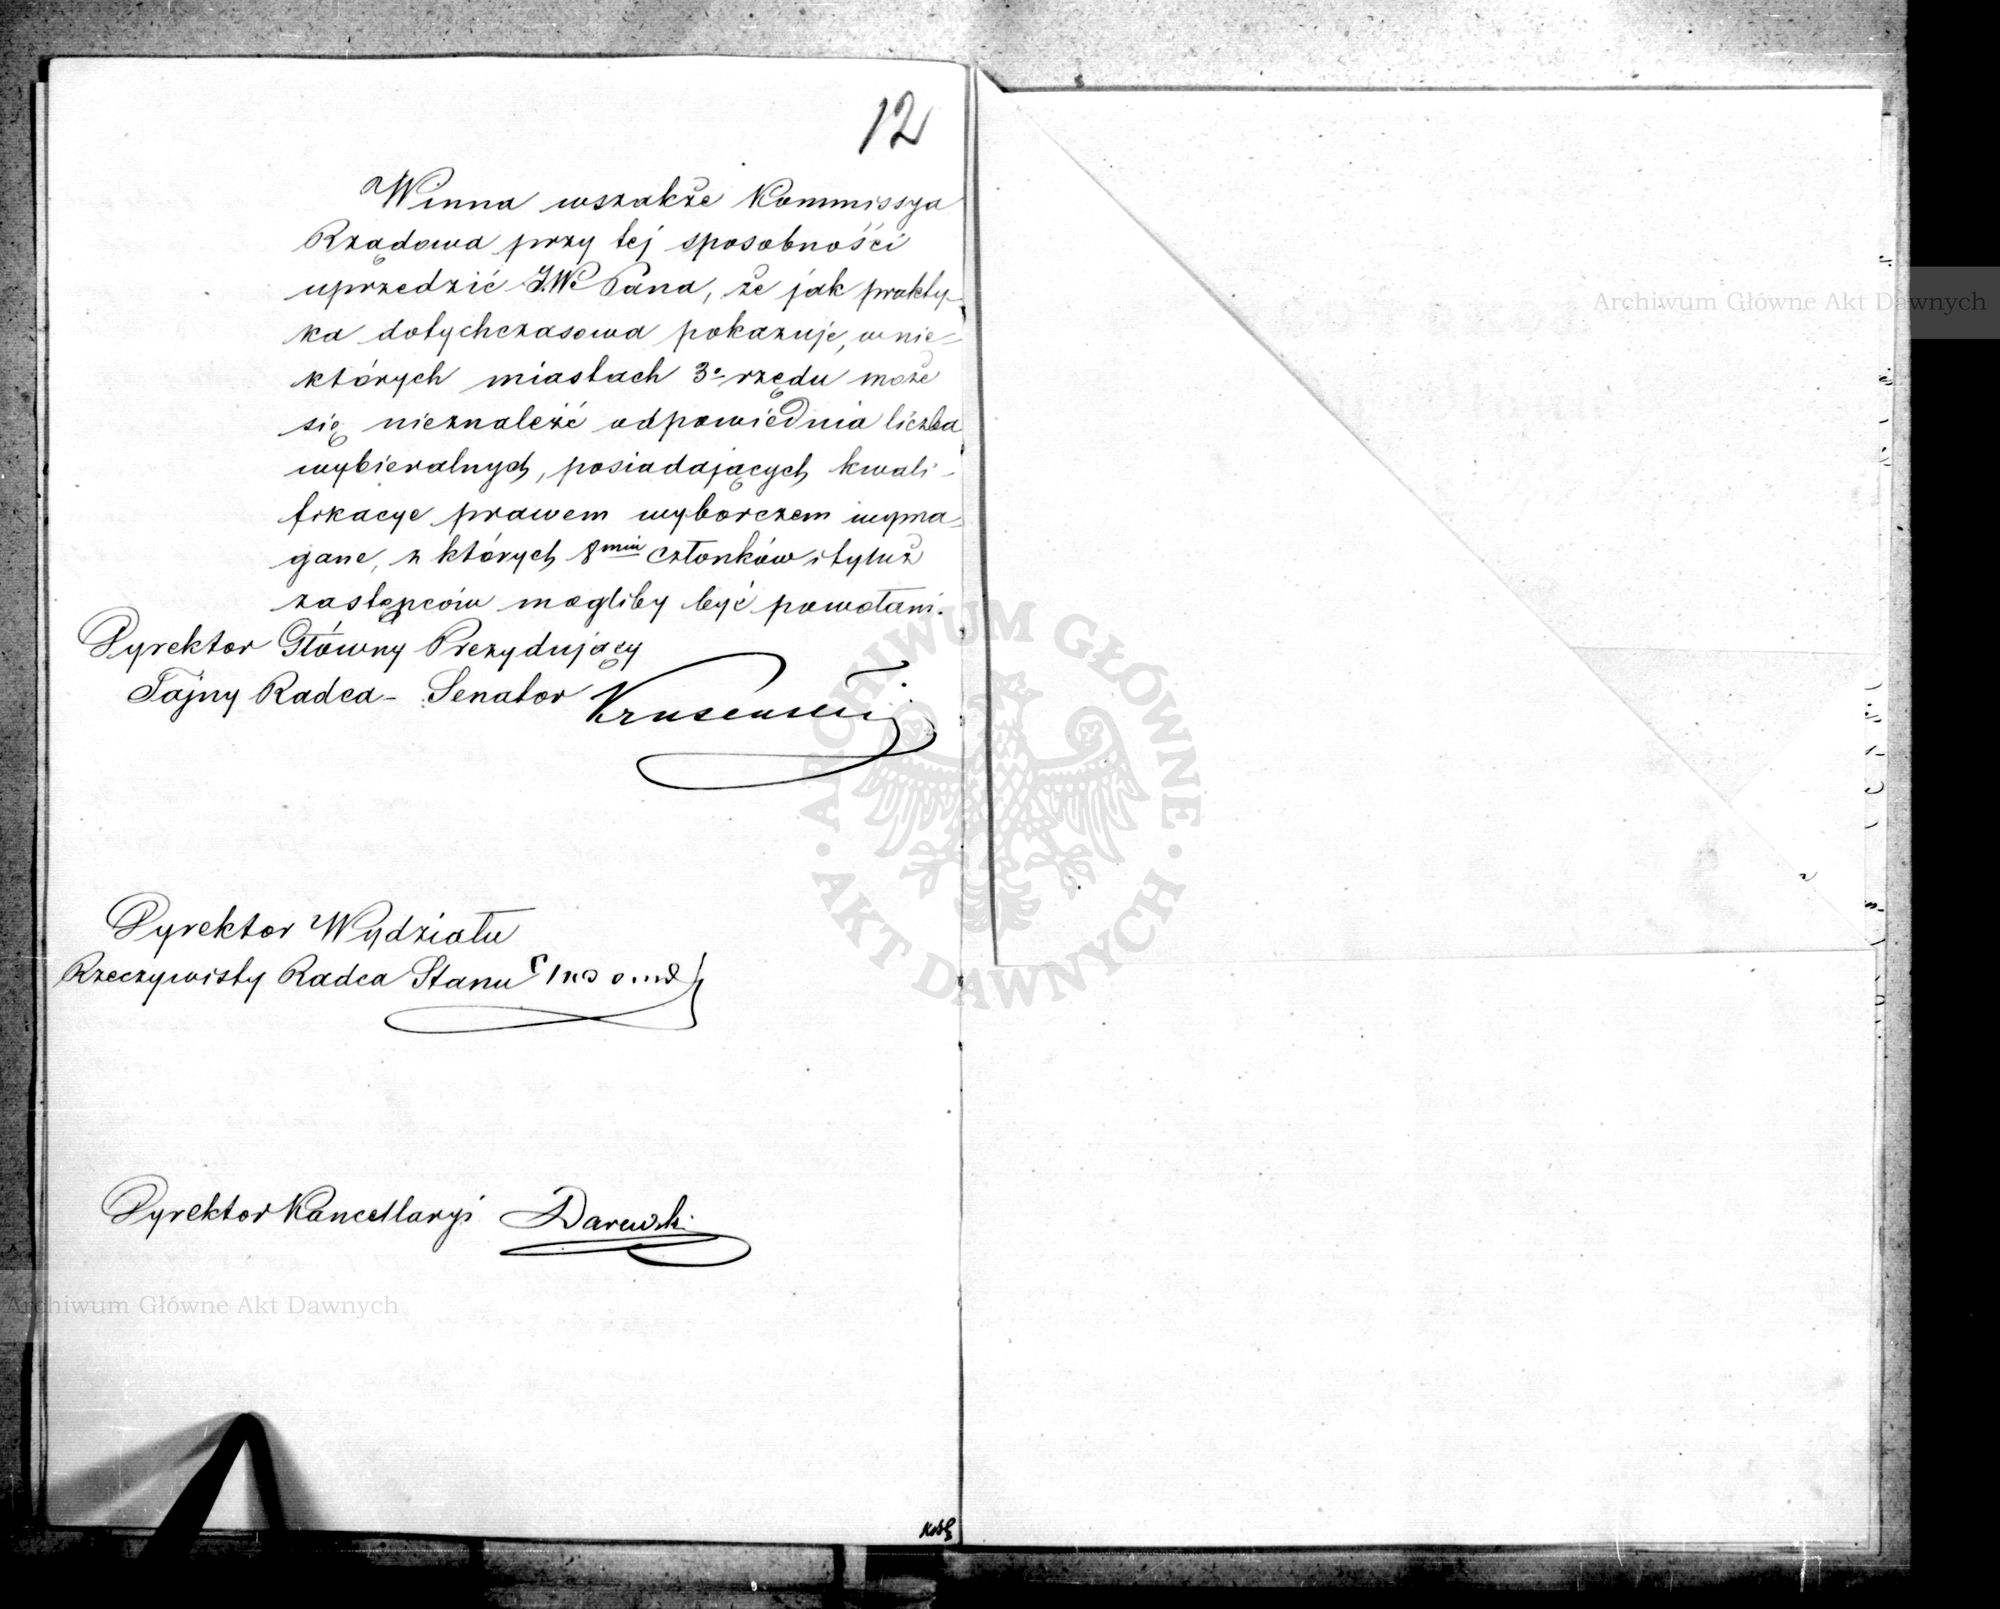 12
Winna wszakże Kommissya
Rządowa przy tej sposobności
uprzedzić J.W. Pana, że jak prakty-
ka dotychczasowa pokazuje, w nie-
których miastach 3° rzędu może
się nieznaleźć odpowiednia liczba
wybieralnych, posiadających kwali-
fikacye prawem wyborczem wyma-
gane, z których 8miu członków i tyluż
zastępców mogliby być powołani.
Dyrektor Główny Prezydujący
Tajny Radca - Senator
Dyrektor Wydziału
Rzeczywisty Radca Stanu
Dyrektor Kancellaryi Darewski
Archiwum Główne Akt Dawnych
ARCHIWUM GŁÓWNE
AKT DAWNYCH
Archiwum Główne Akt Dawnych